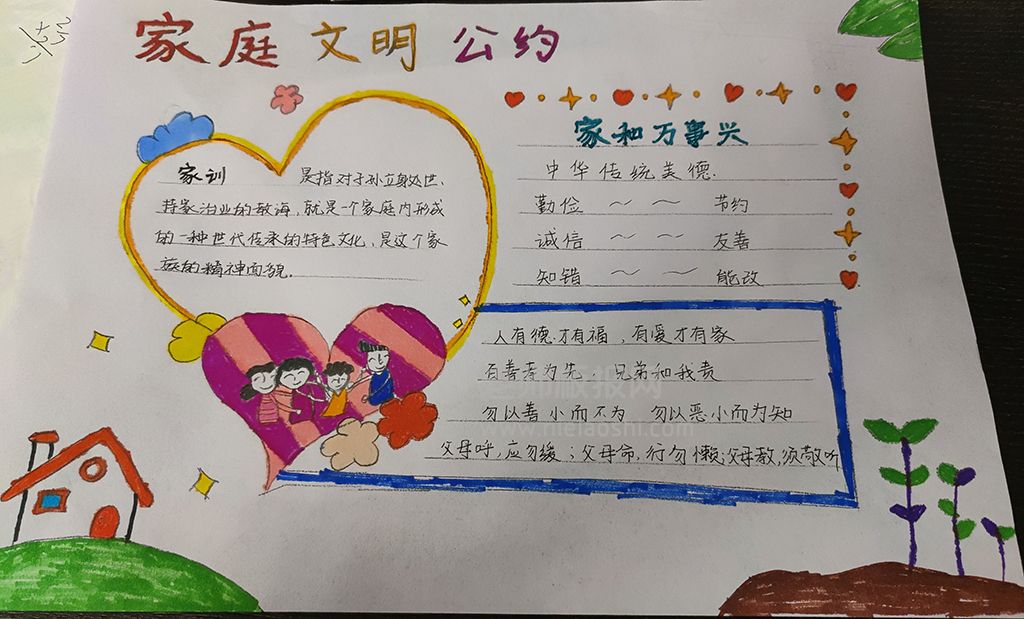 家庭文明公约
家训 是指对子孙立身处世、
持家治业的教诲,就是一个家庭内形成
的一种世代传承的特色文化,是这个家
族的精神面貌.
家和万事兴
中华传统美德.
勤俭 ~ ~ 节约
诚信 ~ ~ 友善
知错 ~ ~ 能改
人有德才有福,有爱才有家
百善孝为先,兄弟和我责
勿以善小而不为 勿以恶小而为知
父母呼,应勿缓、父母命,行勿懒;父母教,须敬听
www.nielaoshi.com